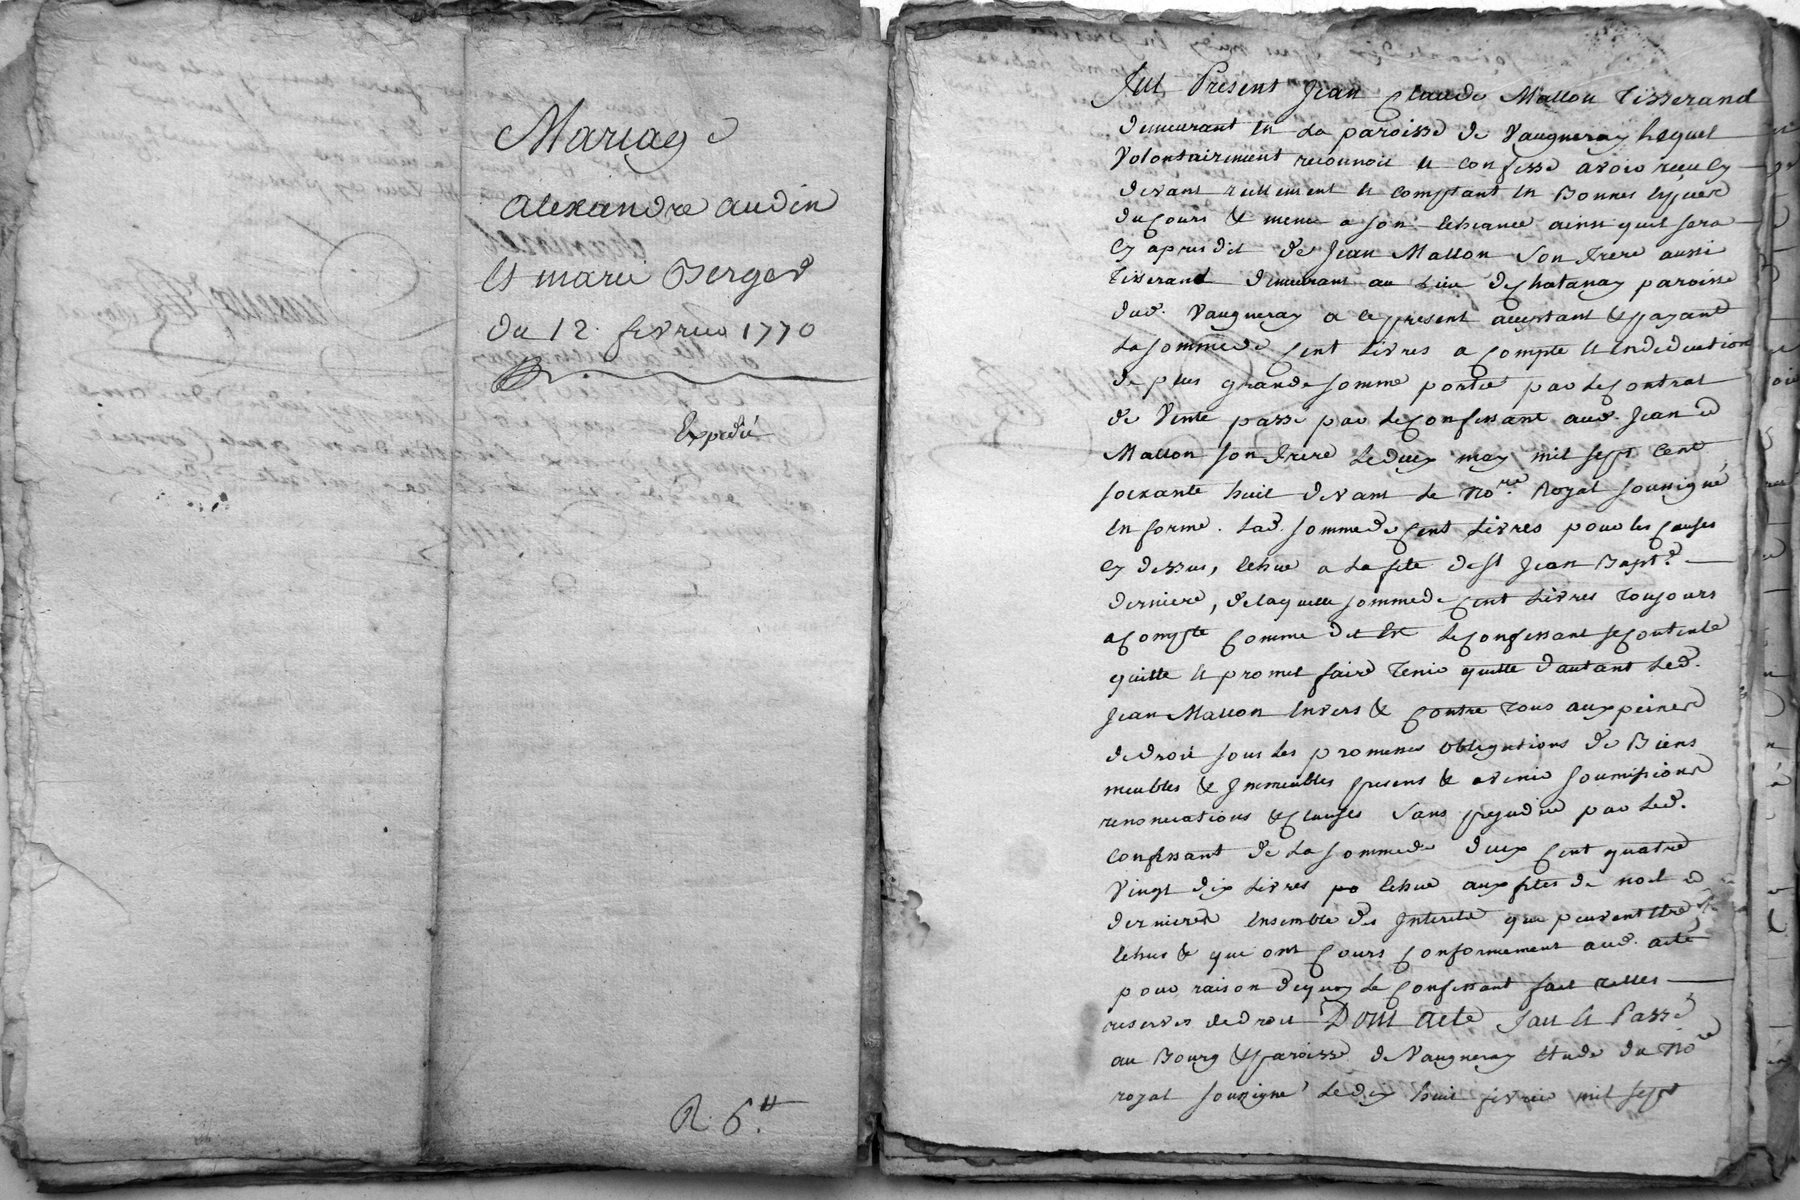 Mariage
alexandre audin
et marie Berger
du 12. fevrier 1770
Expedié
R. 6.₶
Fut Présent Jean Claude Mallon Tisserand
demeurant en la paroisse de Vaugneray Lequel
volontairement reconnoit et confesse avoir recu cy
devant reellement et comptant en Bonnes especes
du cours & meme a son echeance ainsi quil sera
cy apres dit de Jean Mallon son frere aussi
Tisserand demeurant au Lieu de Chatanay paroisse
dud. Vaugneray a ce present acceptant & payant
La somme de Cent Livres a compte et en deduction
de plus grande somme portée par le contrat
de Vente passé par le confessant aud. Jean
Mallon son frere le deux may mil sept cent
soixante huit devant le No.re Royal soussigné
en forme. Lad. somme de Cent Livres pour les causes
cy dessus, echue a la fete de st Jean Bapt.e
derniere, de laquelle somme de Cent Livres toujours
a compte comme dit est le confessant se contente
quitte et promet faire tenir quitte d'autant led.
Jean Mallon envers & contre tous aux peines
de droit sous les promesses obligations de Biens
meubles & Immeubles presens & avenir soumissions
renonciations & clauses sans prejudice par led.
confessant de la somme de deux cent quatre
vingt dix Livres echue aux fetes de noel
dernieres ensemble des Interets que peuvent etre
echus & qui ont cours conformement aud. acte
pour raison dequoy le confessant fait telles
reserves de droit Dont acte fait et Passé
au Bourg & paroisse de Vaugneray etude du No.re
royal soussigné le dix huit fevrier mil sept